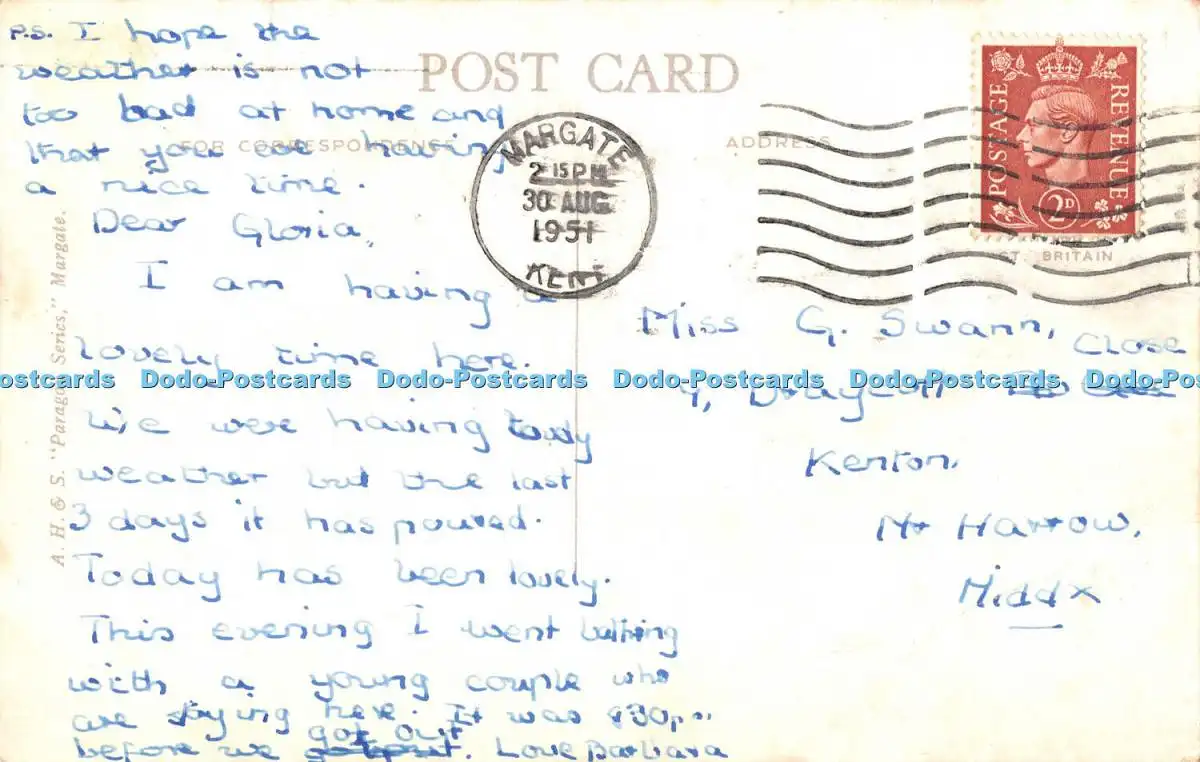 P.S. I hope the
weather is not
too bad at home and
that you are having
a nice time.
Dear Gloria,
I am having a
lovely time here.
We were having lovely
weather but the last
3 days it has poured.
Today has been lovely.
This evening I went bathing
with a young couple who
are staying here. It was 8 30 p.m.
before we got out. Love Barbara
POST CARD
FOR CORRESPONDENCE
ADDRESS
MARGATE
2 15 PM
30 AUG
1951
KENT
POSTAGE
REVENUE
2D
GT. BRITAIN
Miss G. Swann,
Draycott Close
Kenton,
Nr Harrow,
Middx
A. H. & S. "Paragon Series," Margate.
Dodo-Postcards Dodo-Postcards Dodo-Postcards Dodo-Postcards Dodo-Postcards Dodo-Postcards